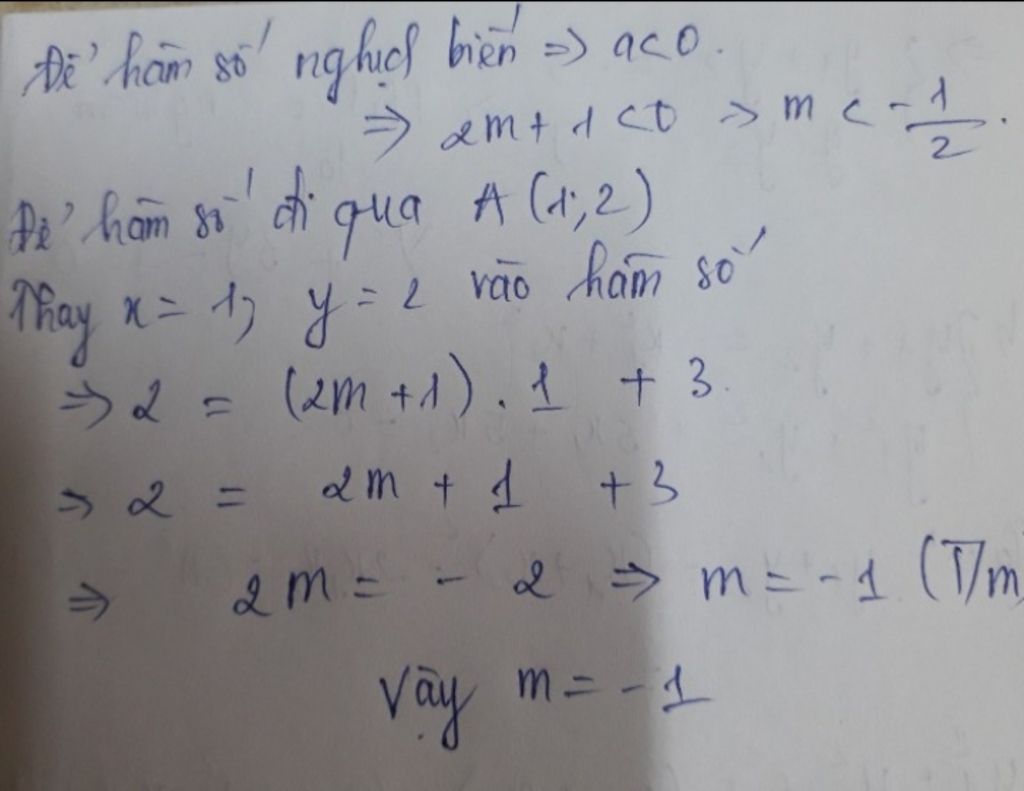 Để hàm số nghịch biến => a<0.
=> 2m + 1 <0 -> m < -1/2.
Để hàm số đi qua A (1;2)
Thay x = 1; y = 2 vào hàm số
=> 2 = (2m +1) . 1 + 3.
=> 2 = 2m + 1 + 3
=> 2m = - 2 => m = -1 (T/m)
Vậy m = -1